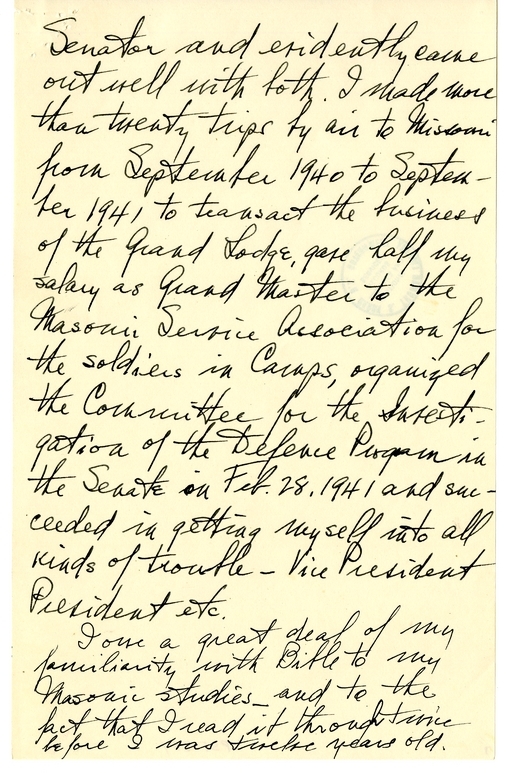 Senator and evidently came
out well with both. I made more
than twenty trips by air to Missouri
from September 1940 to Septem-
ber 1941 to transact the business
of the Grand Lodge, gave half my
salary as Grand Master to the
Masonic Service Association for
the soldiers in Camps, organized
the Committee for the Investi-
gation of the Defence Program in
the Senate on Feb. 28, 1941 and suc-
ceeded in getting myself into all
kinds of trouble – Vice President
President etc.
I owe a great deal of my
familiarity with Bible to my
Masonic studies – and to the
fact that I read it through twice
before I was twelve years old.